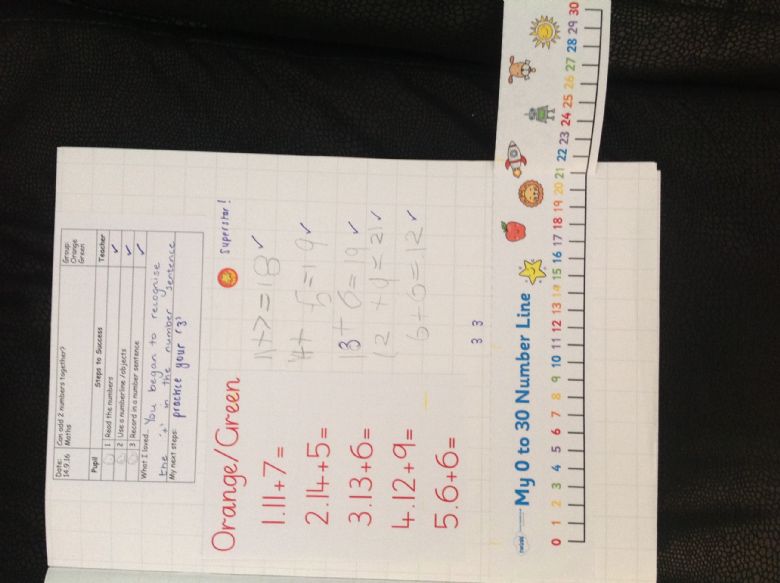 Date:
14.9.16
Can add 2 numbers together?
Maths
Group:
Orange
Green
Pupil
Steps to Success
Teacher
1 Read the numbers ✓
2 Use a numberline/objects ✓
3 Record in a number sentence ✓
What I loved: You began to recognise
the '+' in the number sentence
My next steps: practice your '3'
Orange/Green
superstar!
1.11+7= 11+7=18 ✓
2.14+5= 14+ 5=19 ✓
3.13+6= 3+6=19 ✓
4.12+9= 12 +9=21 ✓
5.6+6= 6+6=12 ✓
3 3
twinkl
My 0 to 30 Number Line
0 1 2 3 4 5 6 7 8 9 10 11 12 13 14 15 16 17 18 19 20 21 22 23 24 25 26 27 28 29 30